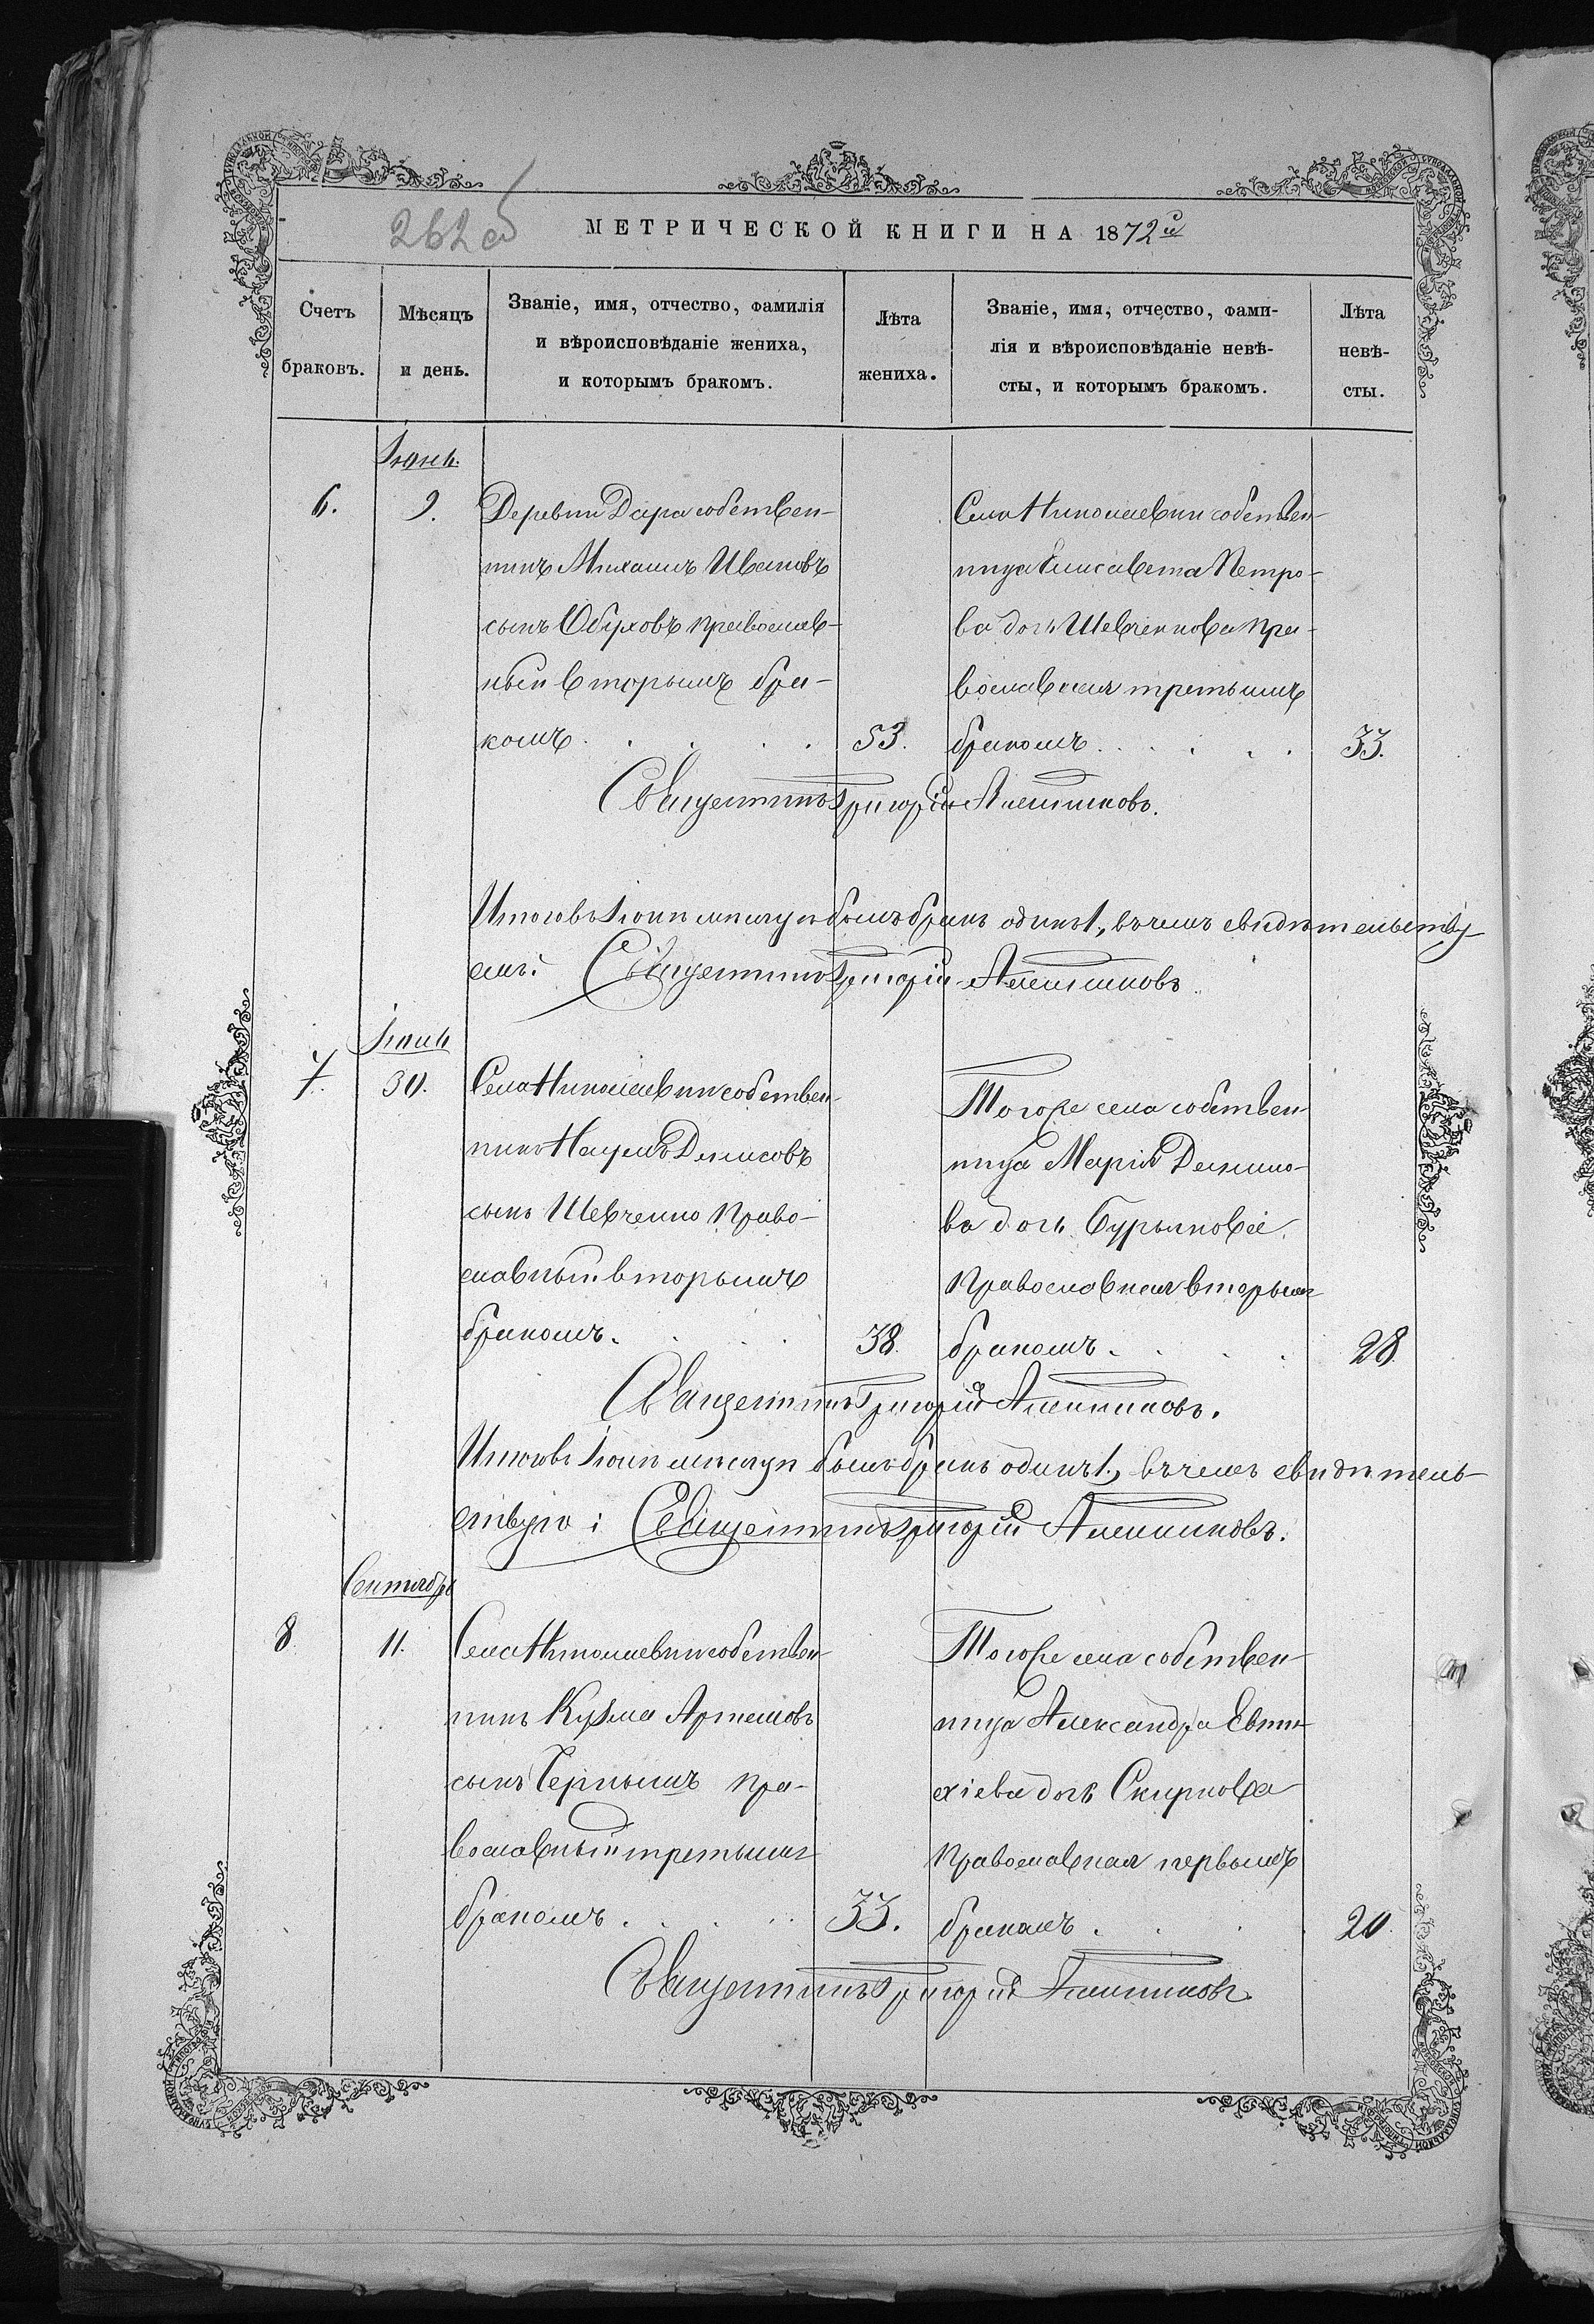 262 об
МЕТРИЧЕСКОЙ КНИГИ НА 1872й
Счетъ
браковъ.
Мѣсяцъ
и день.
Званіе, имя, отчество, фамилія
и вѣроисповѣданіе жениха,
и которымъ бракомъ.
Лѣта
жениха.
Званіе, имя, отчество, фами-
лія и вѣроисповѣданіе невѣ-
сты, и которымъ бракомъ.
Лѣта
невѣ-
сты.
6.
9.
Деревни Дара собствен-
никъ Михаилъ Ивановъ
сынъ Обуховъ православ-
ный вторымъ бра-
комъ.
53.
Села Николаевки собствен-
ница Елисавета Петро-
ва дочь Шевченкова пра-
вославная третьимъ
бракомъ.
33.
Священникъ Григорій
Итого въ мѣсяцѣ былъ бракъ одинъ 1, въ чемъ свидѣтельству-
емъ: Священникъ Григорій
7.
30.
Села Николаевки собствен-
никъ Наумъ Денисовъ
сынъ Шевченко право-
славный вторымъ
бракомъ.
38.
Того же села собствен-
ница Марія
ва дочь Бурьянова
православная вторымъ
бракомъ.
28.
Священникъ Григорій
Итого въ мѣсяцѣ былъ бракъ одинъ 1, въ чемъ свидѣтель-
ствую: Священникъ Григорій
Сентябрь
8.
11.
Села Николаевки собствен-
никъ Кузма Артемовъ
сынъ Чернышъ пра-
вославный третьимъ
бракомъ.
33.
Того же села собствен-
ница Александра Евти-
хіева дочь Скиркова
православная первымъ
бракомъ.
20.
Священникъ Григорій